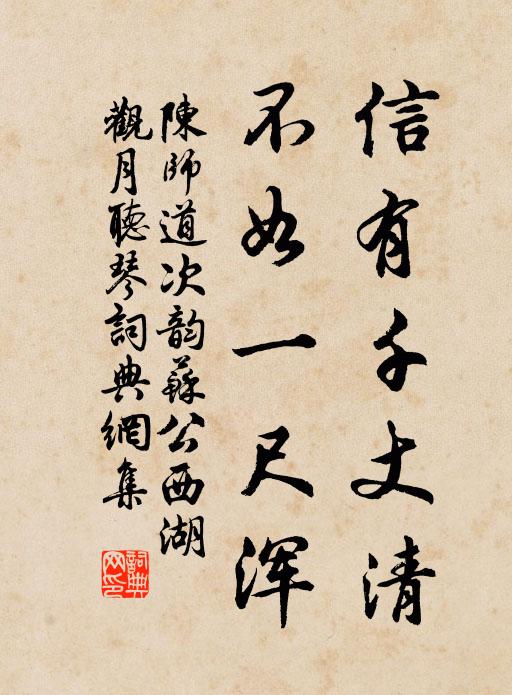 信有千丈清
不如一尺浑
陳師道次韵蘇公西湖
觀月聽琴詞典網集
詞典网印